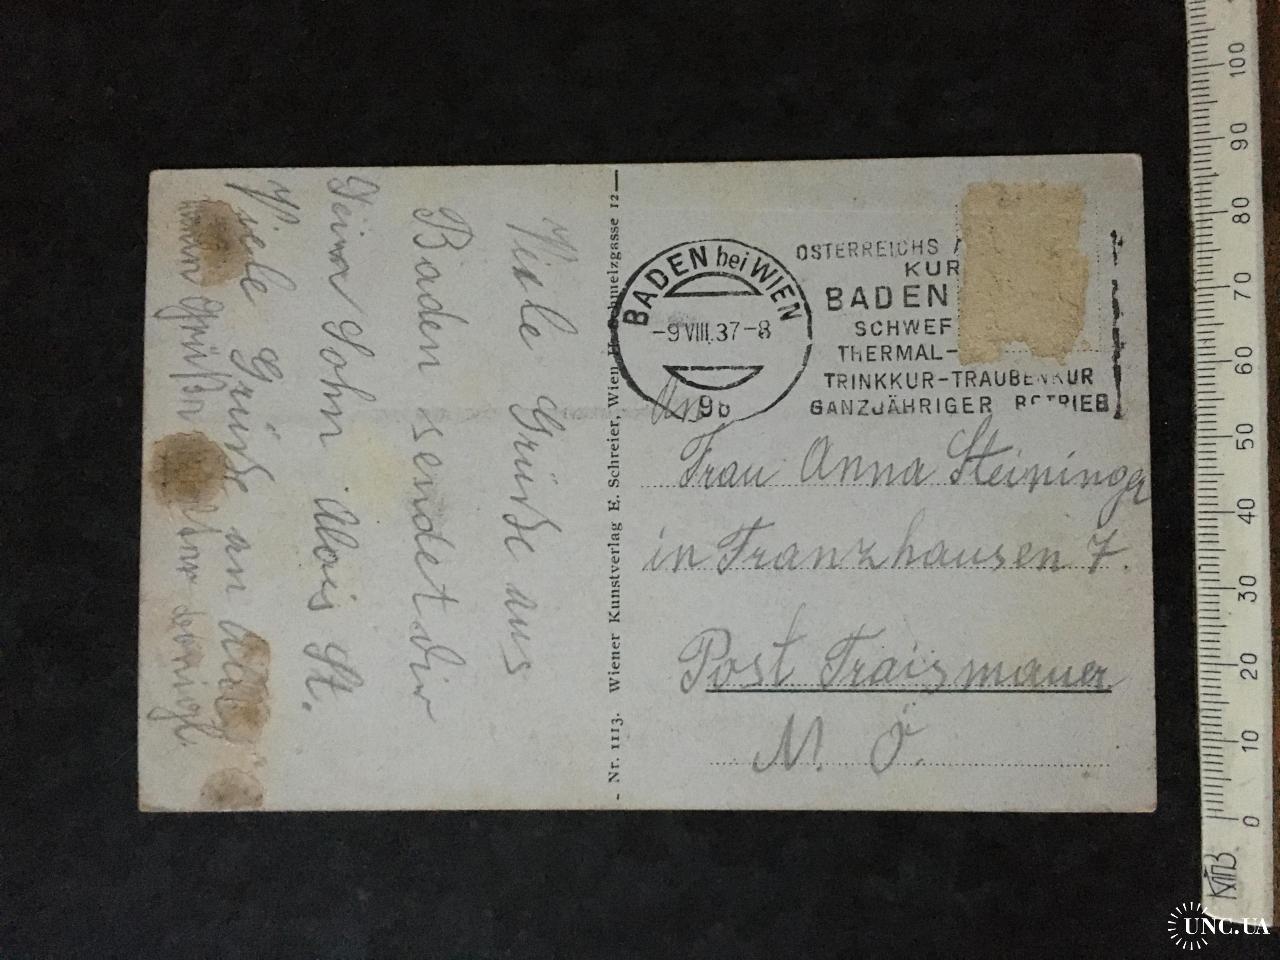 Viele Grüße aus
Baden sendet dir
Dein Sohn Alois St.
Viele Grüße an
Nr. 1113. Wiener Kunstverlag E. Schreier, Wien, II. Schmelzgasse 12
BADEN bei WIEN
-9.VIII.37-8
9b
ÖSTERREICHS
KUR
BADEN
SCHWEF
THERMAL-
TRINKKUR-TRAUBENKUR
GANZJÄHRIGER BETRIEB
An
Frau Anna Steininger
in Franzhausen 7.
Post Traismauer
N. Ö.
100
90
80
70
60
50
40
30
20
10
0
UNC.UA